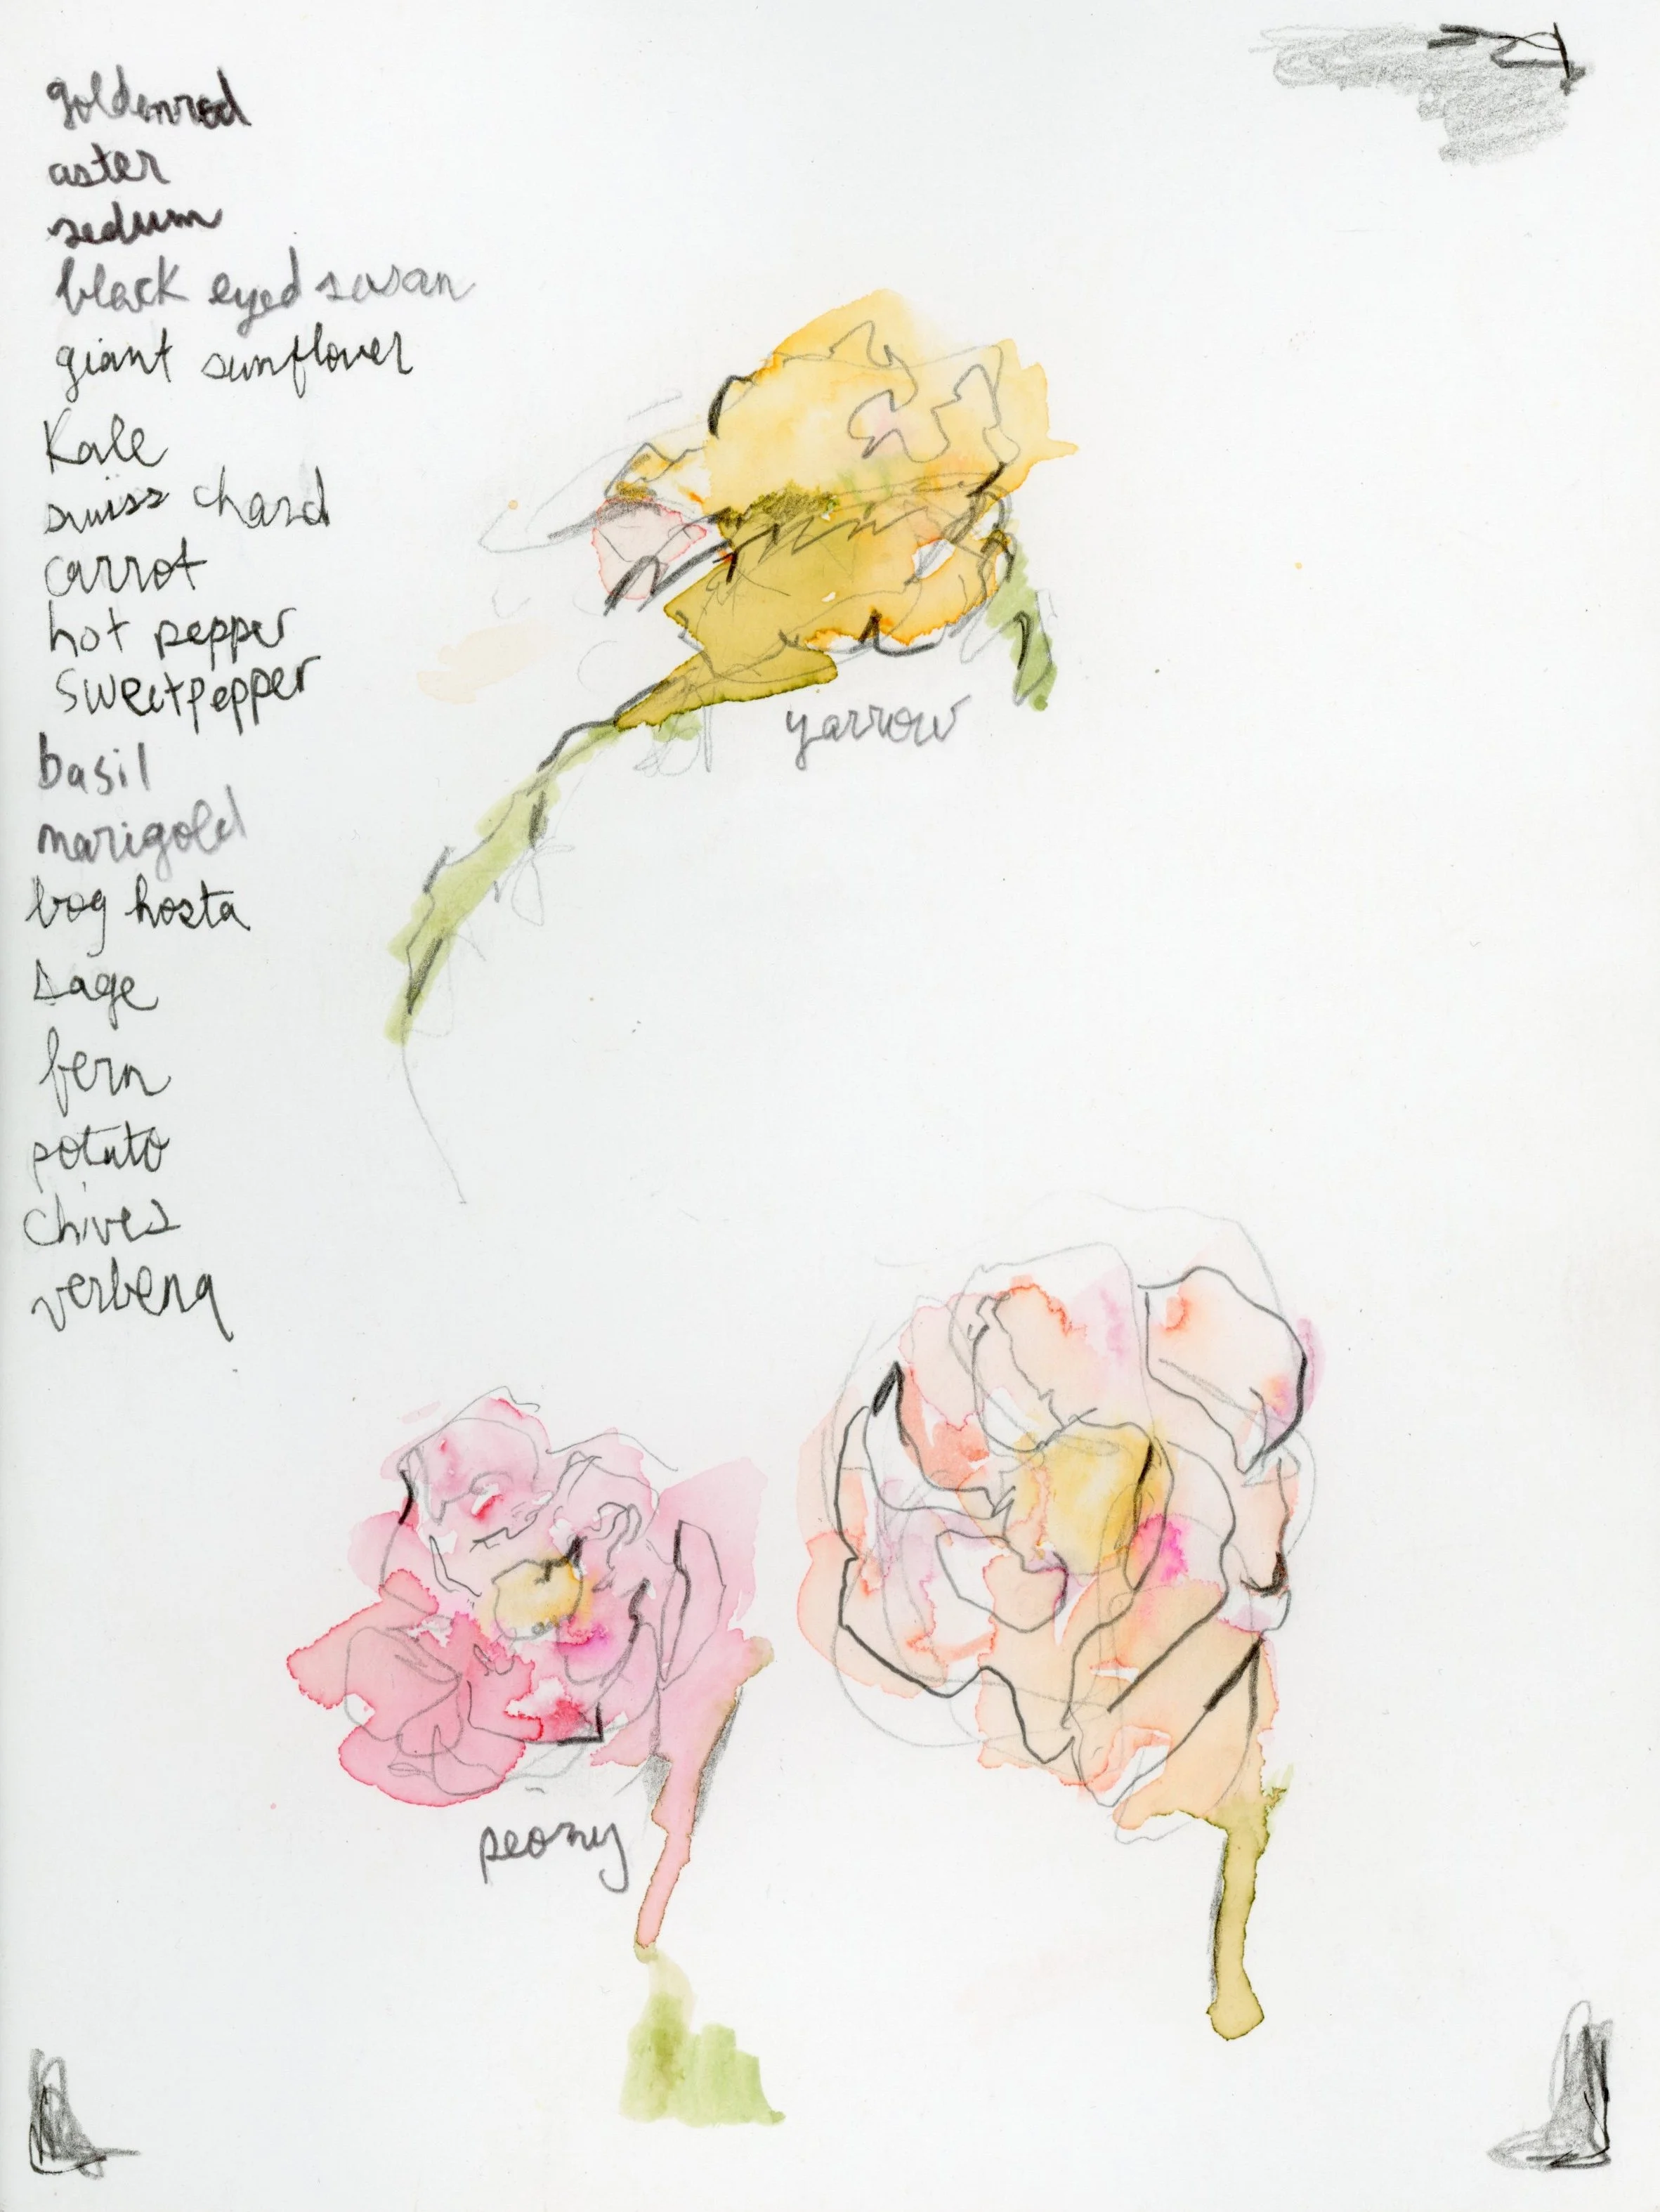 goldenrod
aster
sedum
black eyed susan
giant sunflower
Kale
swiss chard
carrot
hot pepper
sweet pepper
basil
marigold
bog hosta
sage
fern
potato
chives
verbena
yarrow
peony